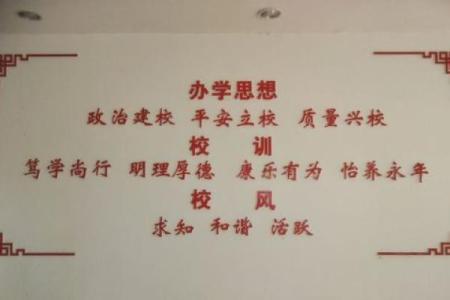 办学思想
政治建校 平安立校 质量兴校
校 训
笃学尚行 明理厚德 康乐有为 怡养永年
校 风
求知 和谐 活跃